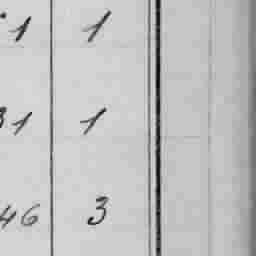 1 1
31 1
46 3